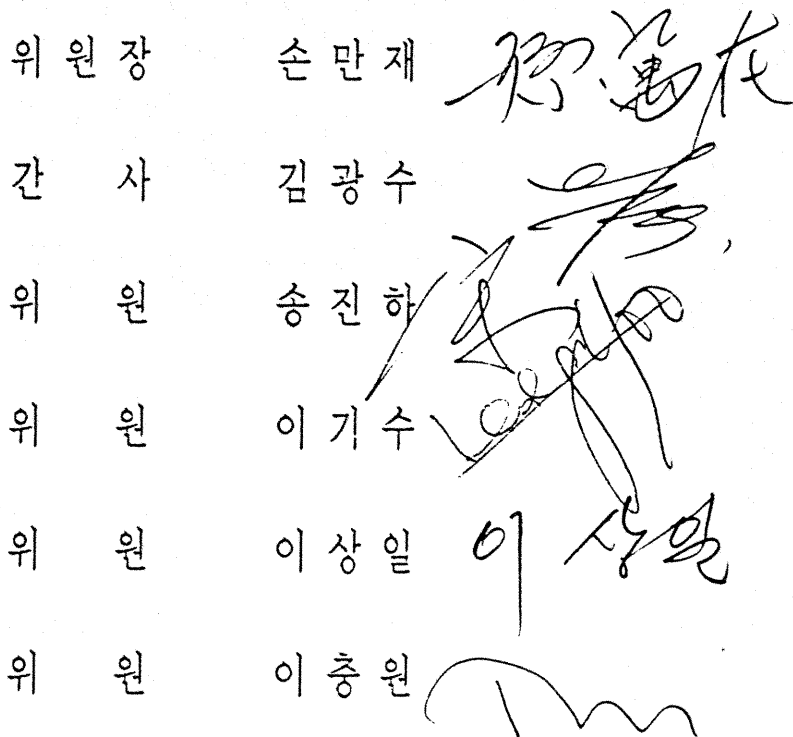 위 원 장 손 만 재 孫 萬 在
간 사 김 광 수
위 원 송 진 하
위 원 이 기 수
위 원 이 상 일 이 상 일
위 원 이 충 원